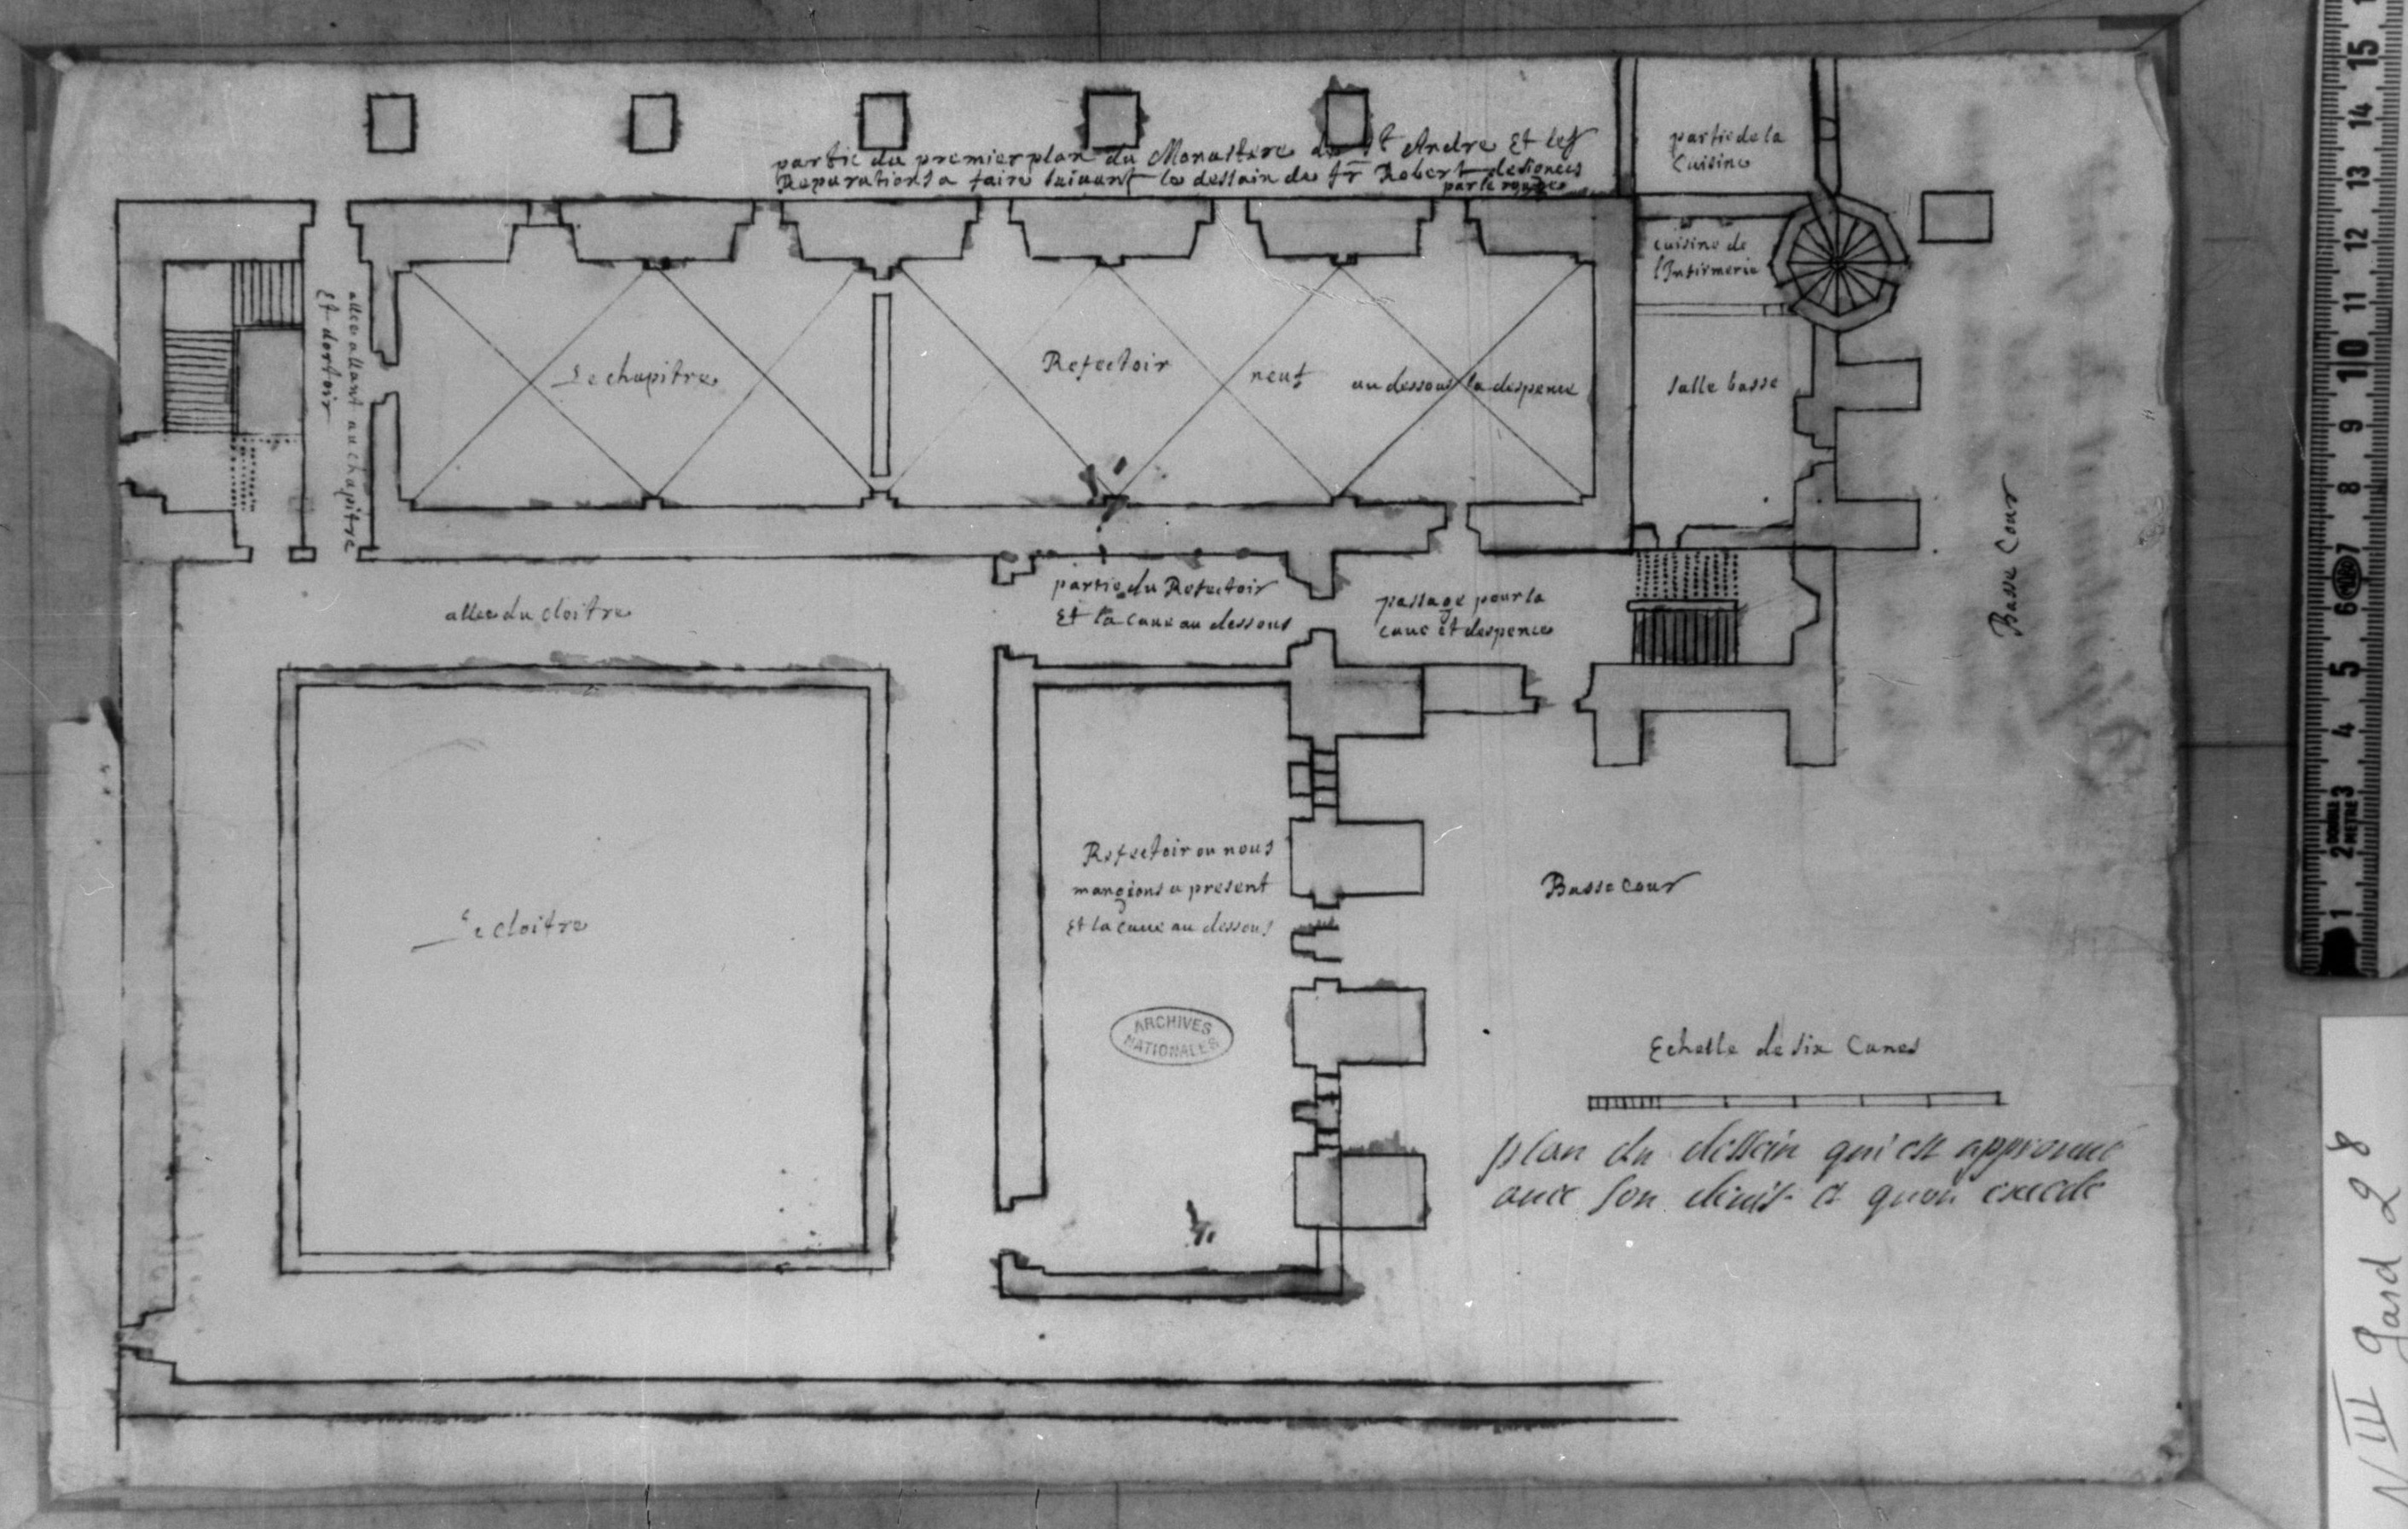 partie du premier plan du Monastere de St Andre Et les
Reparations a faire suivant le dessain du fr Robert designees
par le rouge
partie de la
Cuisine
cuisine de
l'Infirmerie
allee allant au chapitre
Et dortoir
Le chapitre
Refectoir neuf
au dessous la despence
salle basse
Basse Cour
allee du cloitre
partie du Refectoir
Et la caue au dessous
passage pour la
caue et despence
Le cloitre
Refectoir ou nous
mangeons a present
Et la caue au dessous
Basse cour
ARCHIVES
NATIONALES
Echelle de six Canes
plan du dessein qui est approuué
auec son deuis et quon execute
1 2 3 4 5 6 7 8 9 10 11 12 13 14 15
DOUBLE
METRE
N III Gard 28